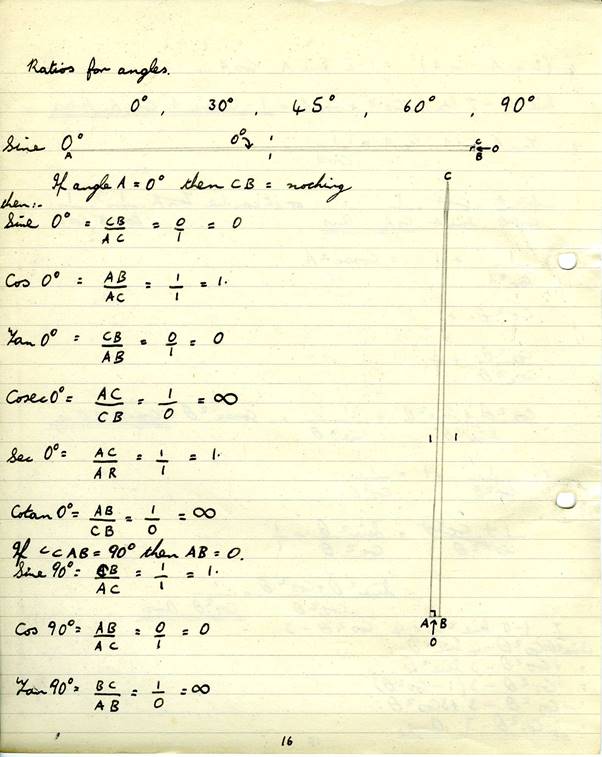 Ratios for angles.
0°, 30°, 45°, 60°, 90°
Sine 0°
A 0° 1 1 C B 0
If angle A = 0° then CB = nothing
then:-
Sine 0° = CB/AC = 0/1 = 0
C
Cos 0° = AB/AC = 1/1 = 1.
Tan 0° = CB/AB = 0/1 = 0
Cosec 0° = AC/CB = 1/0 = ∞
1 1
Sec 0° = AC/AR = 1/1 = 1.
Cotan 0° = AB/CB = 1/0 = ∞
If CAB = 90° then AB = 0.
Sine 90° = CB/AC = 1/1 = 1.
Cos 90° = AB/AC = 0/1 = 0
A B
0
Tan 90° = BC/AB = 1/0 = ∞
16